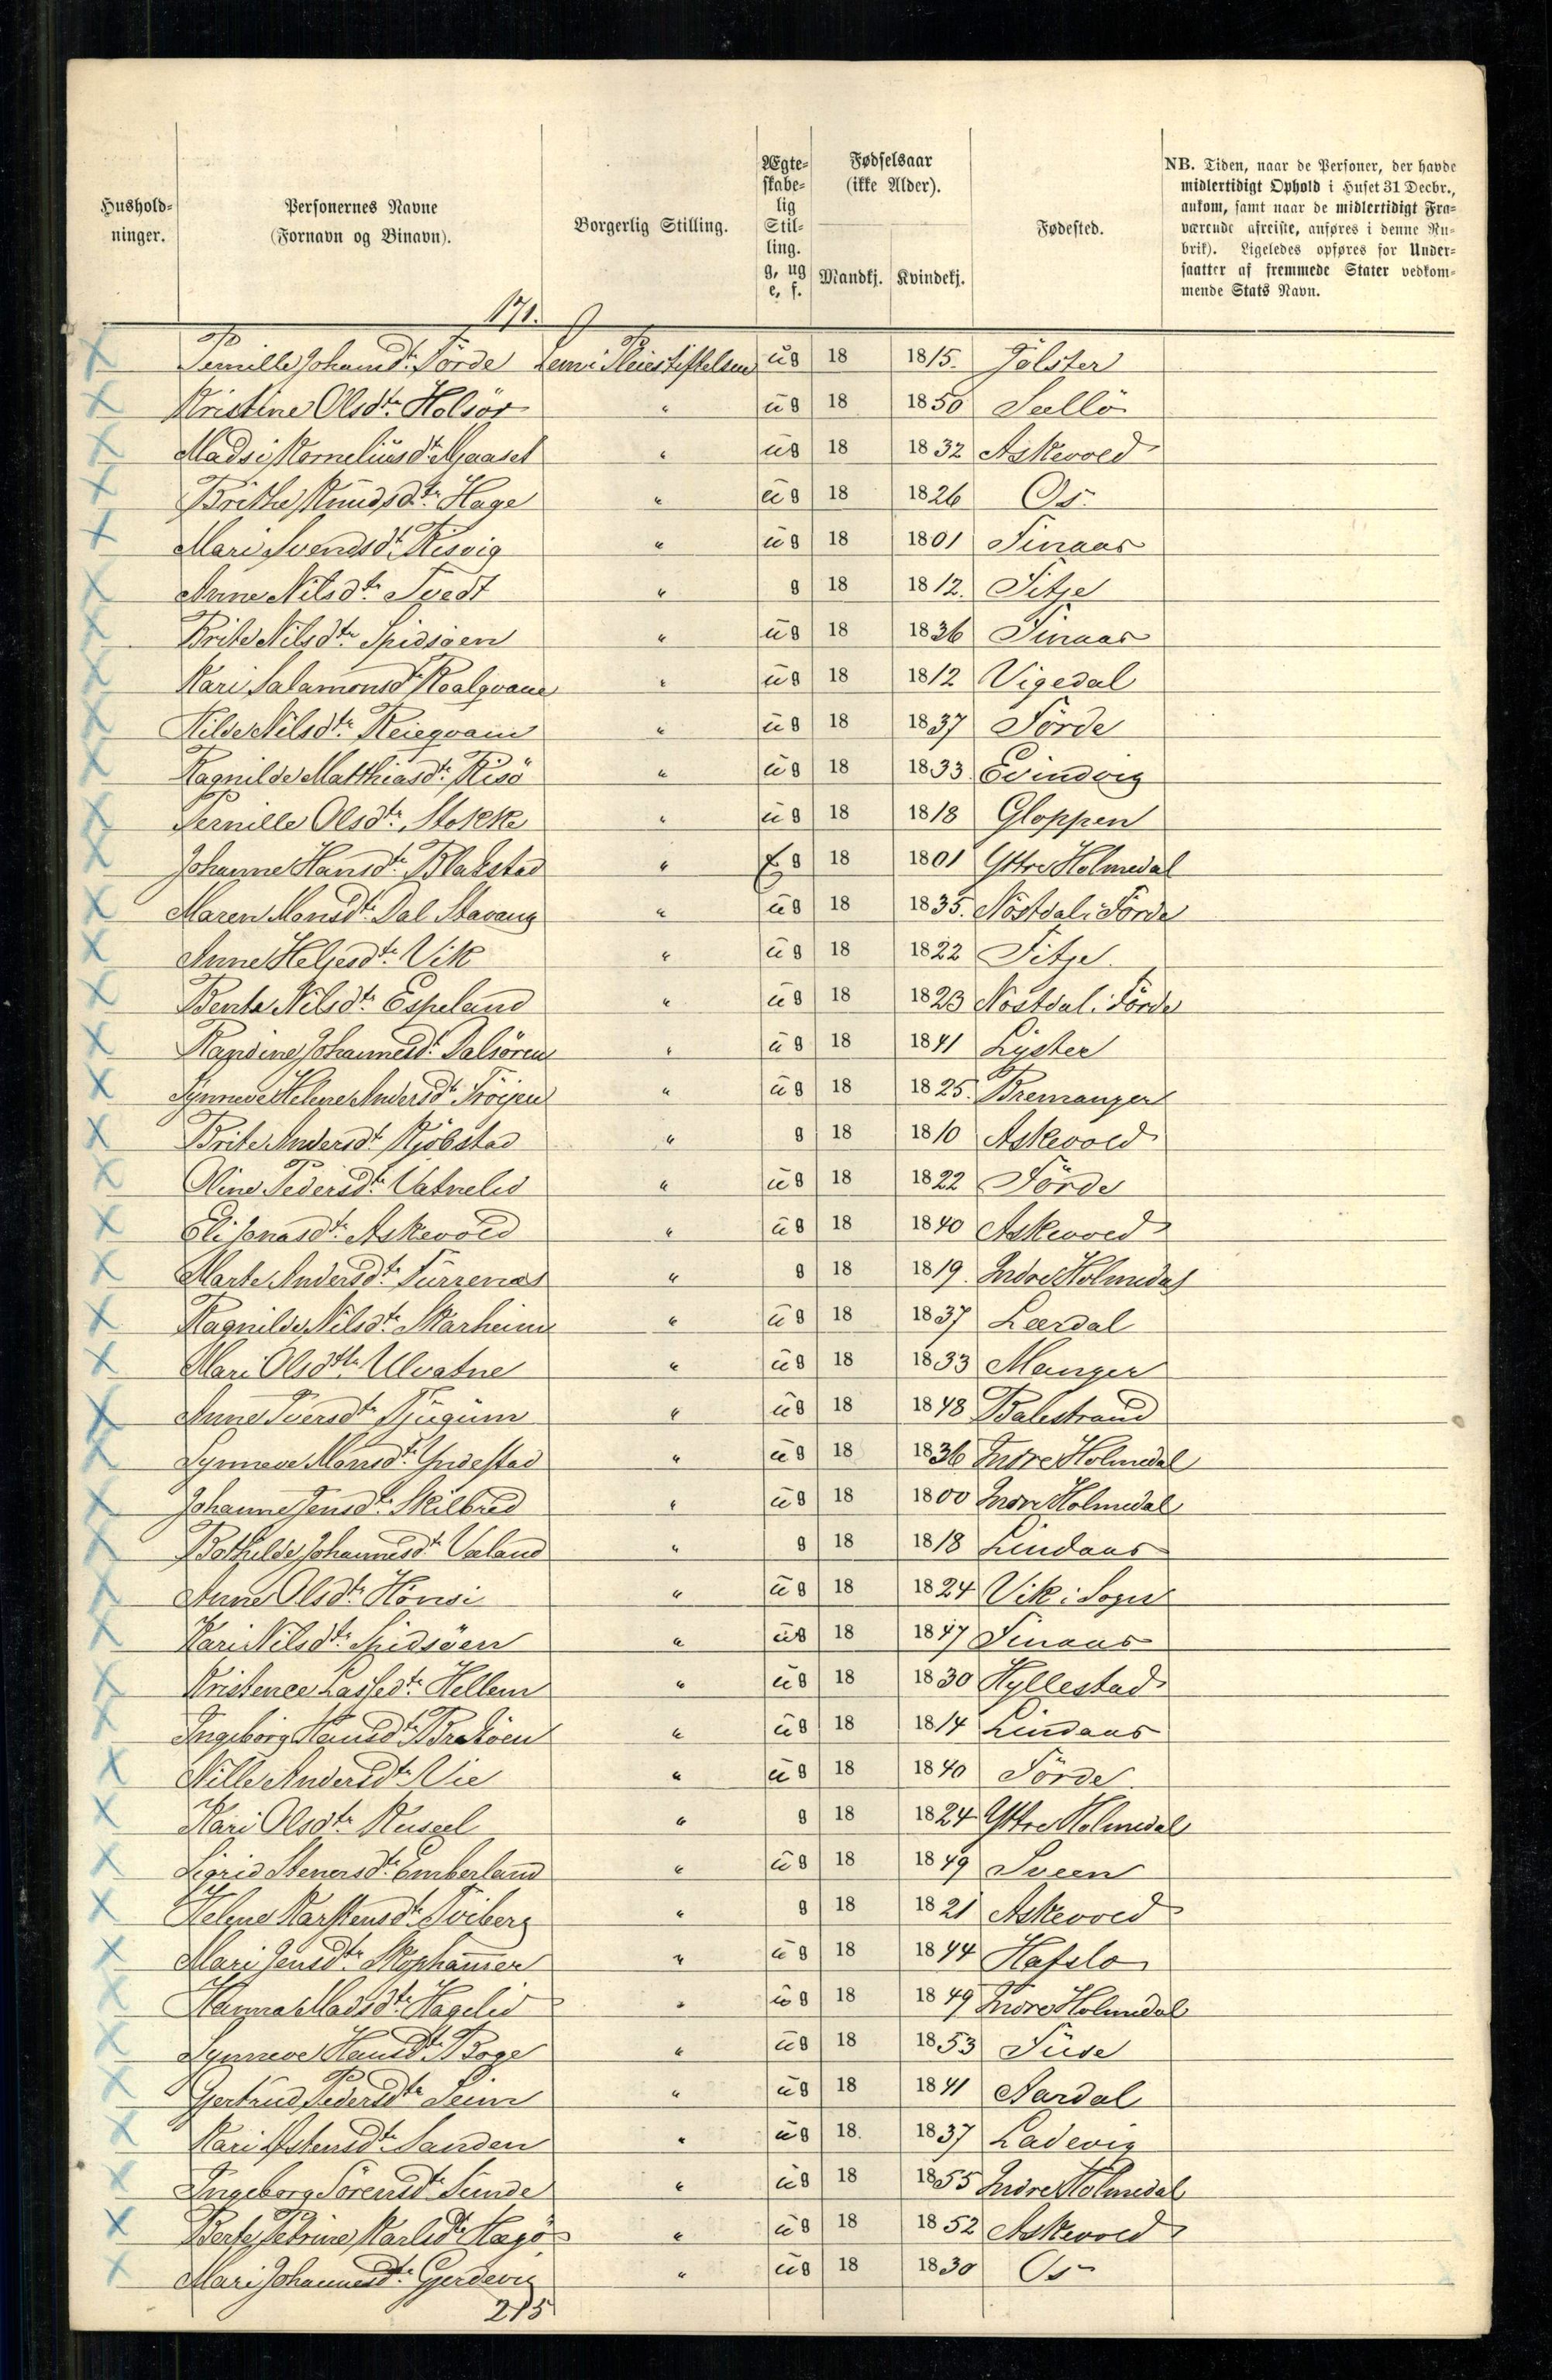 Hushold-
ninger.
Personernes Navne
(Fornavn og Binavn).
Borgerlig Stilling.
Ægte-
skabe-
lig
Stil-
ling.
g, ug
e, f.
Fødselsaar
(ikke Alder).
Mandkj. Kvindekj.
Fødested.
NB. Tiden, naar de Personer, der havde
midlertidigt Ophold i Huset 31 Decbr.,
ankom, samt naar de midlertidigt Fra-
værende afreiste, anføres i denne Ru-
brik). Ligeledes opføres for Under-
saatter af fremmede Stater vedkom-
mende Stats Navn.
171.
X Pernille Johansdtr. Förde Lem i Pleiestiftelsen ug 18 1815. Jölster
X Kristine Olsdtr. Holsör " ug 18 1850 Sellö
X Madsi Korneliusdtr. Mjaaset " ug 18 1832 Askevold
X Brithe Knudsdtr. Hage " ug 18 1826 Os
X Mari Svendsdtr. Risvig " ug 18 1801 Finaas
X Anne Nilsdtr. Tvedt " g 18 1812. Fitje
X Brite Nilsdtr. Spidsöen " ug 18 1836 Finaas
X Kari Salamonsdtr. Roalqvam " ug 18 1812 Vigedal
X Nilde Nilsdtr. Reieqvam " ug 18 1837 Förde
X Ragnilde Matthiasdtr. Risö " ug 18 1833. Evindvig
X Pernille Olsdtr. Stokke " ug 18 1818 Gloppen
X Johanne Hansdtr. Blakstad " g 18 1801 Yttre Holmedal
X Maren Monsdtr. Dal Stavang " ug 18 1835. Nöstdal i Förde
X Anne Heljesdtr. Vik " ug 18 1822 Fitje
X Benta Nilsdtr. Espeland " ug 18 1823 Nöstdal i Förde
X Randine Johannesdtr. Dalsören " ug 18 1841 Lyster
X Synneve Helene Andersdtr. Tröijen " ug 18 1825. Bremanger
X Brite Andersdtr. Kjöbstad " g 18 1810 Askevold
X Oline Pedersdtr. Vatnelid " ug 18 1822 Förde
X Eli Jonasdtr. Askevold " ug 18 1840 Askevold
X Marte Andersdtr. Furrenæs " g 18 1819. Indre Holmedal
X Ragnilde Nilsdtr. Skarheim " ug 18 1837 Lærdal
X Mari Olsdtr. Ulvatne " ug 18 1833 Manger
X Anne Iversdtr. Tjugum " ug 18 1848 Balestrand
X Synneve Monsdtr. Yndestad " ug 18 1836 Indre Holmedal
X Johanne Jensdtr. Skilbred " ug 18 1800 Indre Holmedal
X Bothilde Johannesdtr. Væland " g 18 1818 Lindaas
X Anne Olsdtr. Hönsi " ug 18 1824 Vik i Sogn
X Kari Nilsdtr. Spidsöen " ug 18 1847 Finaas
X Kristence Lassedtr. Hellem " ug 18 1830 Hyllestad
X Ingeborg Hansdtr. Bratöen " ug 18 1814 Lindaas
X Nille Andersdtr. Vie " ug 18 1840 Förde
X Kari Olsdtr. Kuseel " g 18 1824 Yttre Holmedal
X Sigrid Stenersdtr. Emberland " ug 18 1849 Sveen
X Helene Karstensdtr. Tviberg " g 18 1821 Askevold
X Mari Jensdtr. Skophammer " ug 18 1844 Hafslo
X Hanna Madsdtr. Hagelid " ug 18 1849 Indre Holmedal
X Synneve Hansdtr. Boge " ug 18 1853 Fuse
X Gertrud Pedersdtr. Seim " ug 18 1841 Aardal
X Kari Østensdtr. Sanden " ug 18 1837 Ladevig
X Ingeborg Sörensdtr. Sunde " ug 18 1855 Indre Holmedal
X Berte Petrine Karlsdtr. Hægö " ug 18 1852 Askevold
X Mari Johannesdtr. Gjerdevig " ug 18 1830 Os
215